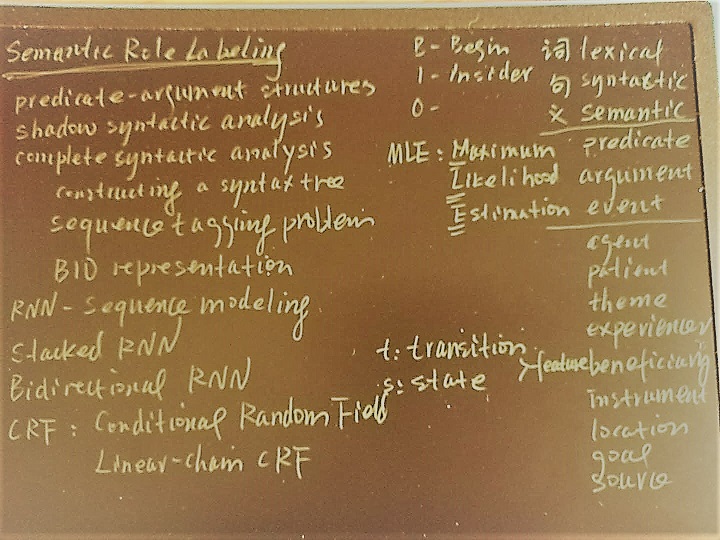 Semantic Role Labeling
predicate-argument structures
shadow syntactic analysis
complete syntactic analysis
constructing a syntax tree
sequence tagging problem
BIO representation
RNN - sequence modeling
Stacked RNN
Bidirectional RNN
CRF : Conditional Random Field
Linear-chain CRF
B - Begin
I - Insider
O -
MLE : Maximum
Likelihood
Estimation
t: transition
s: state
feature
词 lexical
句 syntactic
义 semantic
predicate
argument
event
agent
patient
theme
experiencer
beneficiary
instrument
location
goal
source